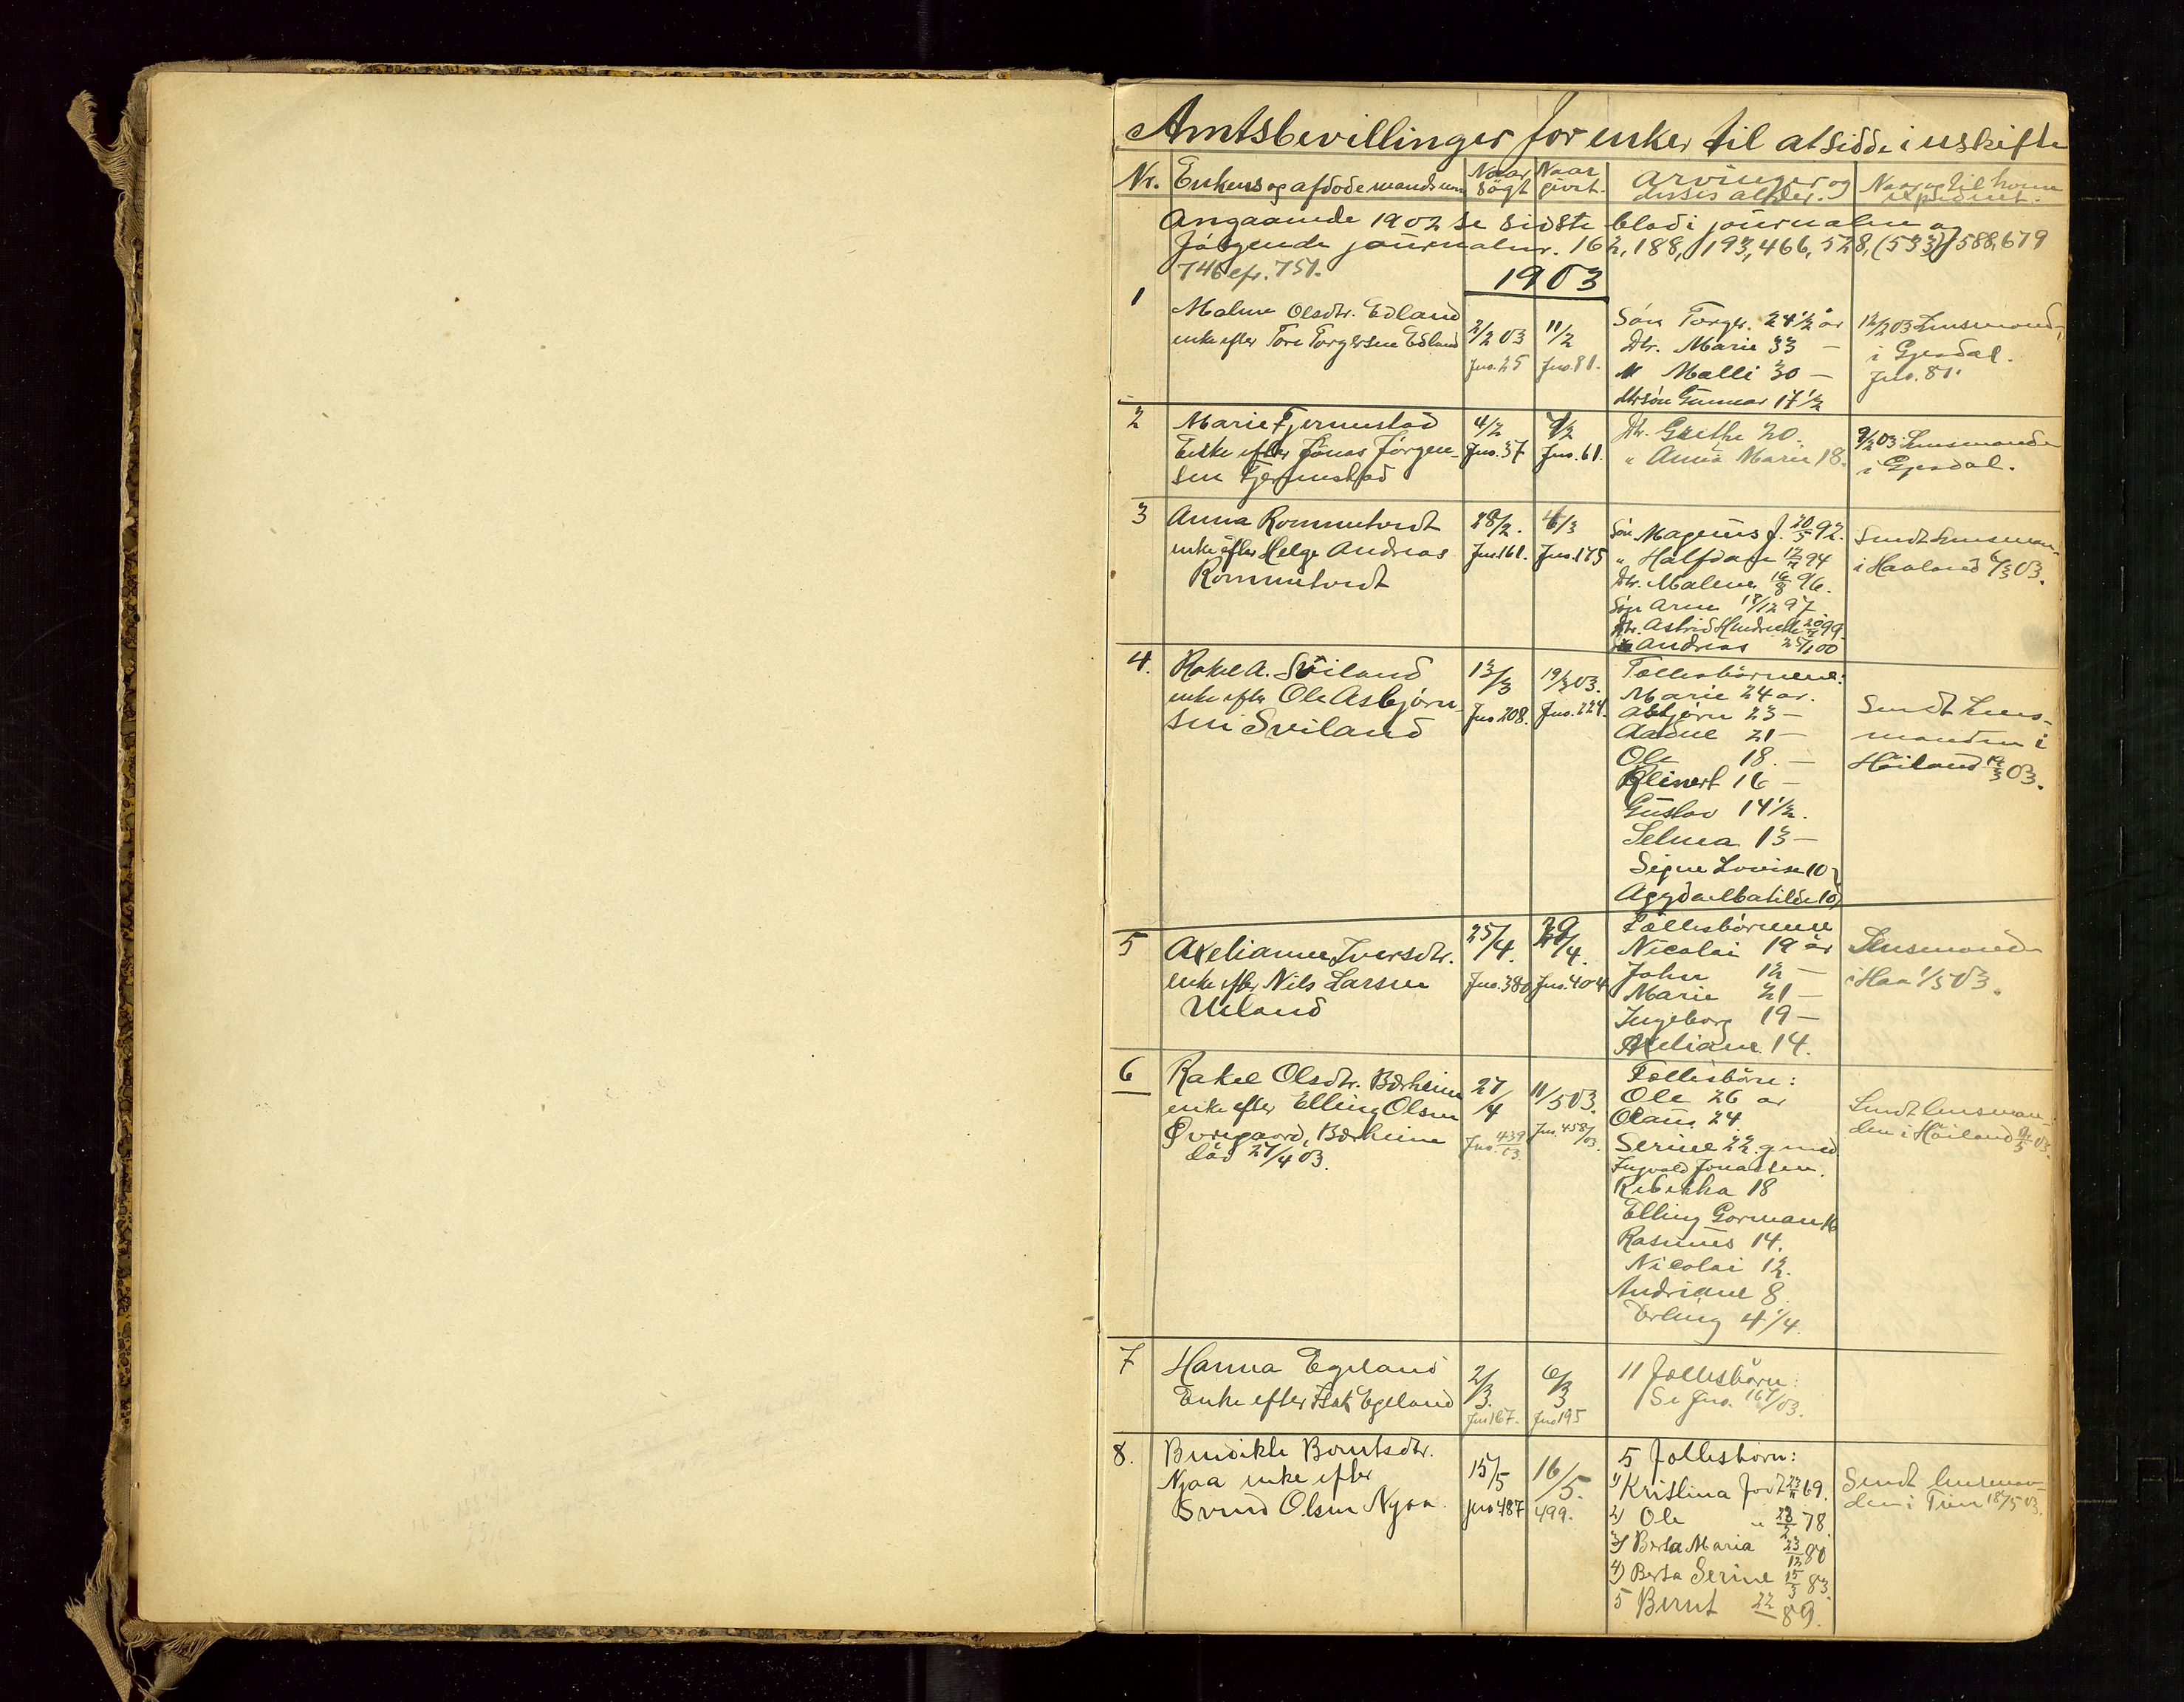 Amtsbevillinger for enker til at sidde i uskifte
Nr. Enkens og afdøde mands navn Naar søgt Naar givet. Arvinger og disses alder. Naar og til hvem expederet.
Angaaende 1902 se sidste blad i journalen og
følgende journalnr. 162, 188, 193, 466, 528, (533) 588, 679
746 cfr. 751.
1903
1
Malene Olsdtr. Edland
enke efter Tore Torgersen Edland
2/2 03
Jno. 25
11/2
Jno. 81.
Søn Torger. 24 1/2 år
Dtr. Marie 33 —
" Malli 30 —
dtrsøn Gunnar 17 1/2
12/2 03 Lensmand
i Gjesdal.
Jno. 81.
2
Marie Fjermestad
Enke efter Jonas Jørgen-
sen Fjermestad
4/2
Jno. 37
7/2
Jno. 61.
Dtr. Grethe 20.
" Anna Marie 18.
9/2 03 Lensmanden
i Gjesdal.
3
Anna Rommetvedt
enke efter Helge Andreas
Rommetvedt
28/2.
Jno 161.
4/3
Jno. 175
Søn Magnus f. 20/5 92.
" Halfdan 12/7 94
Dtr. Malene 16/8 96.
Søn Arne 18/12 97
Dtr. Astrid Hendrikke 20/7 99
Andreas 25/1 00
Sendt lensman-
i Haaland 6/3 03.
4.
Rakel A. Sviland
enke efter Ole Asbjørn-
sen Sviland
13/3
Jno 208.
19/3 03.
Jno. 224.
Fællesbørnene:
Marie 24 ar.
Asbjørn 23 —
Aadne 21 —
Ole 18. —
Reinert 16 —
Gustav 14 1/2.
Selma 13 —
Signe Lovise 10
Agyda Matilde 10
Sendt Lens-
manden i
Høiland 19/3 03.
5
Axelianne Iversdtr.
enke efter Nils Larsen
Ueland
25/4.
Jno. 380
29/4.
Jno. 404
Fællesbørnene
Nicolai 19 år
John 12 —
Marie 21 —
Ingeborg 19 —
Axeliane 14.
Lensmand
i Haa 1/5 03.
6
Rakel Olsdtr. Bærheim
enke efter Elling Olsen
Øvregaard, Bærheim
død 27/4 03.
27/4
Jno. 439/03.
11/5 03.
Jno. 458/03.
Fællesbørn:
Ole 26 ar
Olaus 24.
Serine 22. g. med
Ingvald Jonassen.
Rebekka 18
Elling Gorman 16
Rasmus 14.
Nicolai 12.
Andriane 8.
Erling 4 1/4.
Sendt lensman-
den i Høiland 12/5 03.
7
Hanna Egeland
Enke efter Isak Egeland
2/3.
Jno 167.
6/3
Jno 195
11 fællesbørn:
Se Jno. 167/03.
8.
Bendikte Berntsdtr.
Njaa enke efter
Svend Olsen Njaa.
15/5
Jno 487
16/5.
499.
5 fællesbørn:
1) Kristina født 23/11 69.
2) Ole " 23/2 78.
3) Berta Maria 23/12 80
4) Berta Serine 15/3 83.
5 Bernt 22/ 89.
Sendt lensman-
den i Time 18/5 03.